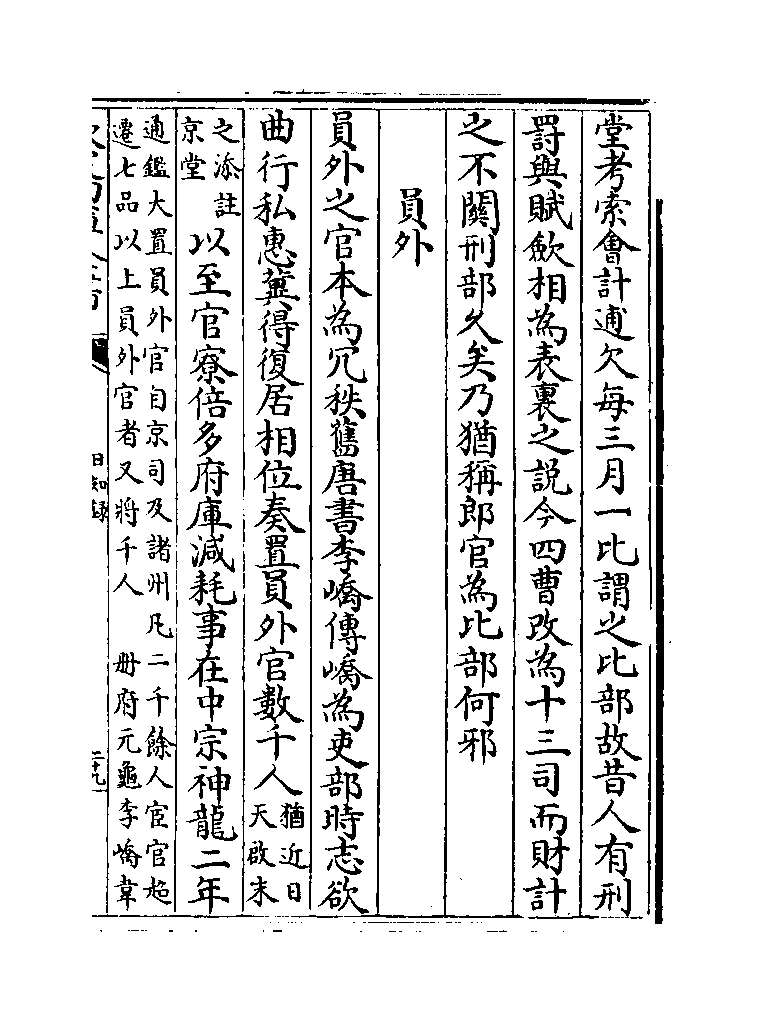 堂考索㑹計逋欠每三月一比謂之比部故昔人有刑
罸與賦斂相為表裏之説今四曹改為十三司而財計
之不闗刑部乆矣乃猶稱郎官為比部何邪
員外
員外之官本為冗秩舊唐書李嶠傳嶠為吏部時志欲
曲行私惠冀得復居相位奏置員外官數千人猶近日天啟末
之添註京堂以至官寮倍多府庫減耗事在中宗神龍二年
通鑑大置員外官自京司及諸州凡二千餘人宦官超
遷七品以上員外官者又將千人 册府元龜李嶠韋
日知録
二十九